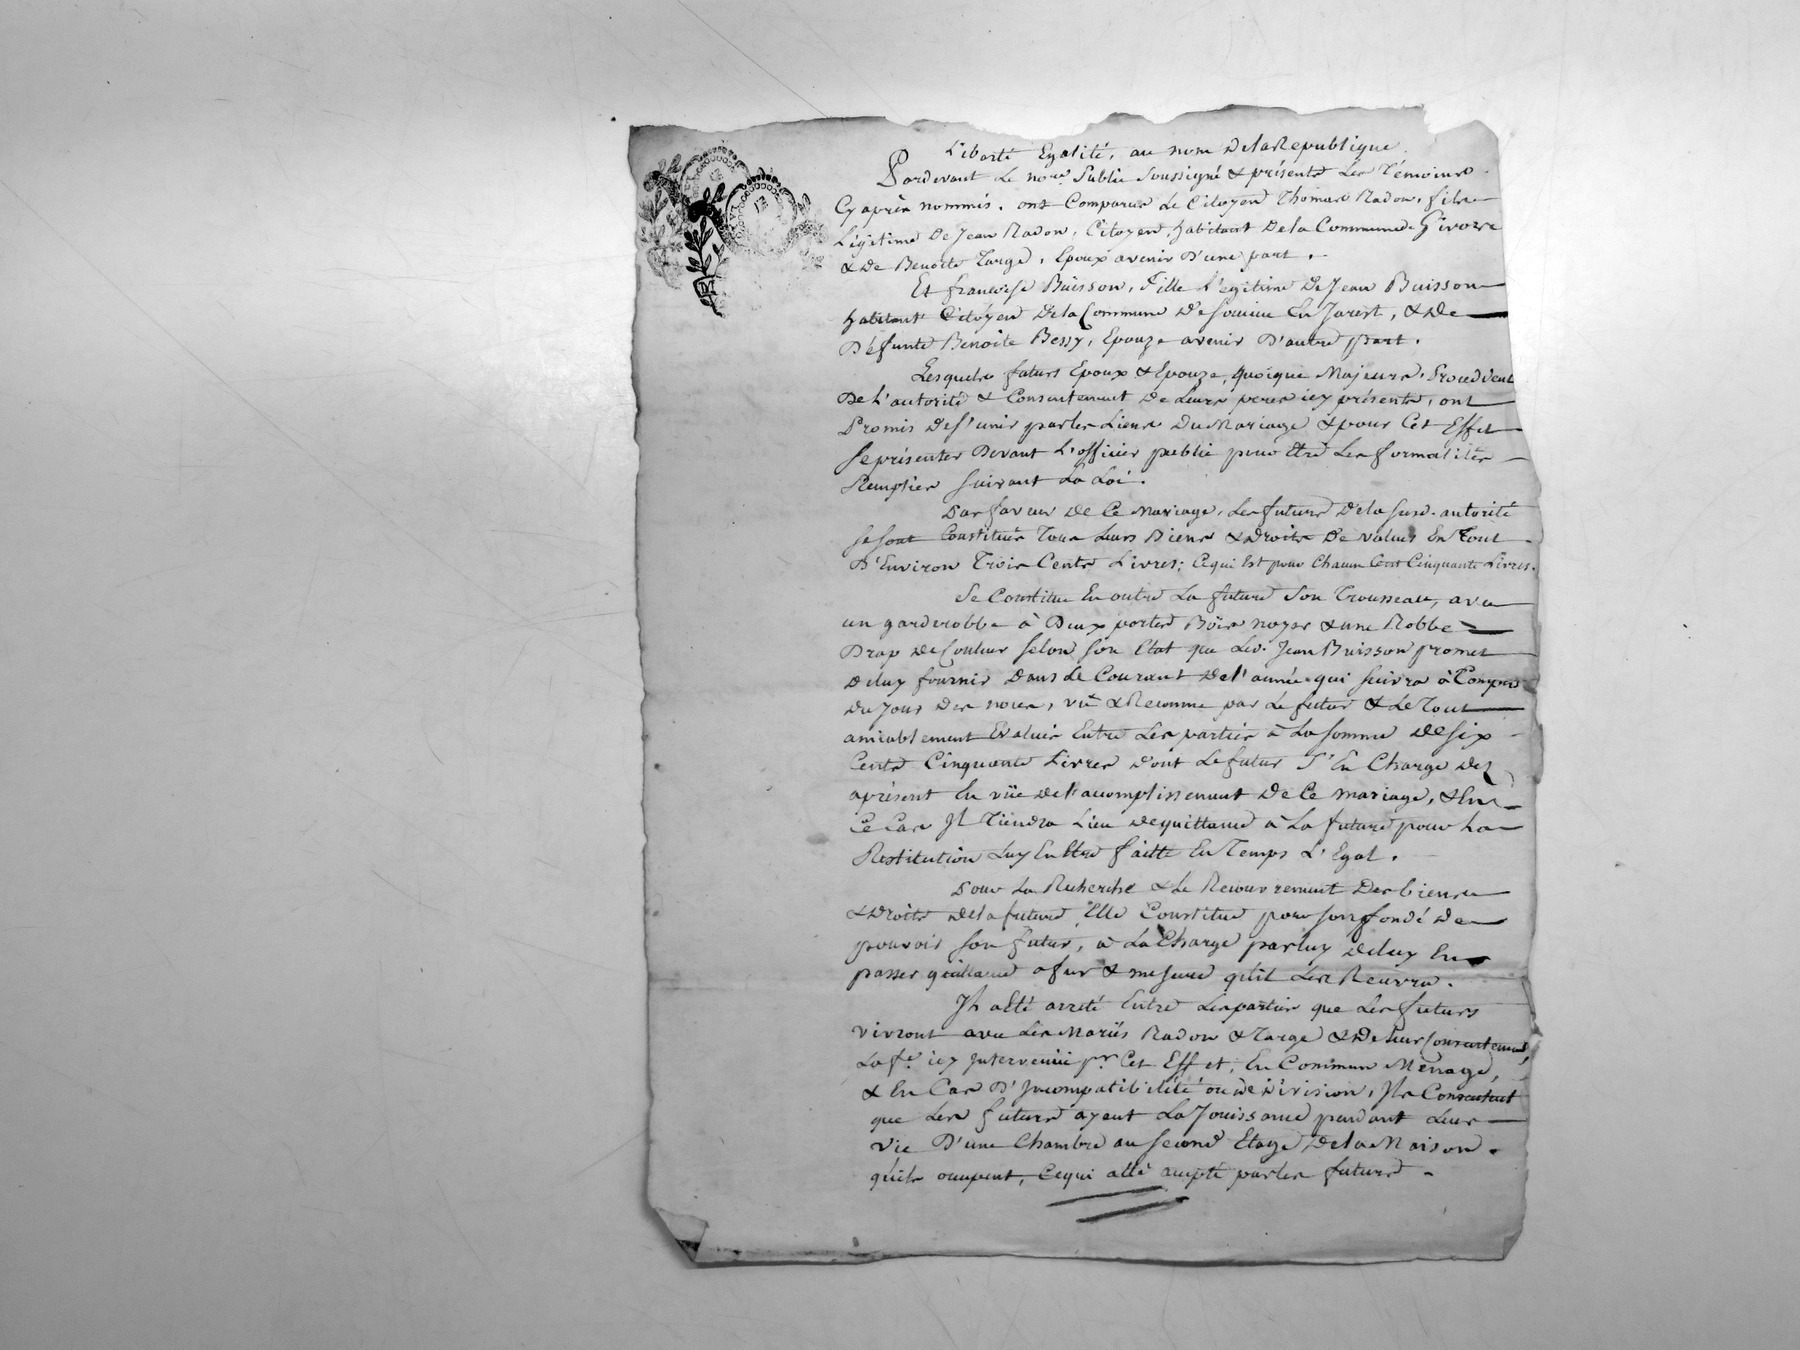 Liberté Egalité, au nom de la Republique.
Pardevant Le nore. Public Soussigné & présents Les Témoins
Cy après nommés. ont Comparus Le Citoyen Thomas Radon, fils
Légitime De Jean Radon, Citoyen, habitant De la Commune Givors
& De Benoite Targe, Epoux avenir D'une part.
Et francoise Buisson, fille L'egitime De Jean Buisson
habitant Citoyen De la Commune De En Jarest, & De
Défunte Benoite Bessy, Epouze avenir D'autre part.
Lesquels futurs Epoux & Epouze, quoique Majeurs, Procedent
De L'autorité & Consentement De Leurs peres icy présents, ont
Promis De s'unir par les Liens Du Mariage & pour Cet Effet
se présenter Devant L'officier public pour Etre Les formalités
Remplies suivant La Loi.
En faveur de Ce Mariage, Les futurs De la susd. autorité
se sont Constitués Tous Leurs Biens & Droits De valeur En Tout
D'Environ Trois Cents Livres; Ce qui Est pour Chacun Cent Cinquante Livres.
Se Constitue En outre La future Son Trousseau, avec
un garderobbe à Deux portes Bois noyer & une Robbe
Drap De Couleur selon son Etat que Led. Jean Buisson promet
De luy fournir Dans Le Courant De L'année qui suivra à Compter
Du Jour Des noces, vû & Reconnu par Le futur & Le Tout
amiablement Evalué Entre Les parties à La somme De six
Cents Cinquante Livres Dont Le futur s'En Charge Dez
aprésent En vüe De L'acomplissement De Ce Mariage, & En
Ce Cas Il Tiendra Lieu De quittance à La future pour La
Restitution Luy En Etre faitte En Temps L'Egal.
Pour La Recherche & Le Recouvrement Des biens
& Droits De la future Elle Constitue pour son fondé De
pouvoir son futur, a La Charge par luy De luy En
passer quittance a fur & mesure qu'il Les Recevra.
Il a Eté arreté Entre Les parties que Les futurs
vivront avec Les Mariés Radon & Targe & De Leur Consentement,
La fe. icy Intervenüe pr. Cet Effet, En Commun Ménage,
& En Cas D'Incompatibilité ou De Division, Ils Consentent
que Les futurs ayent La Jouissance pendant Leur
vie D'une Chambre au second Etage De la Maison
qu'ils occupent, Ce qui a Eté accepté par Les futurs